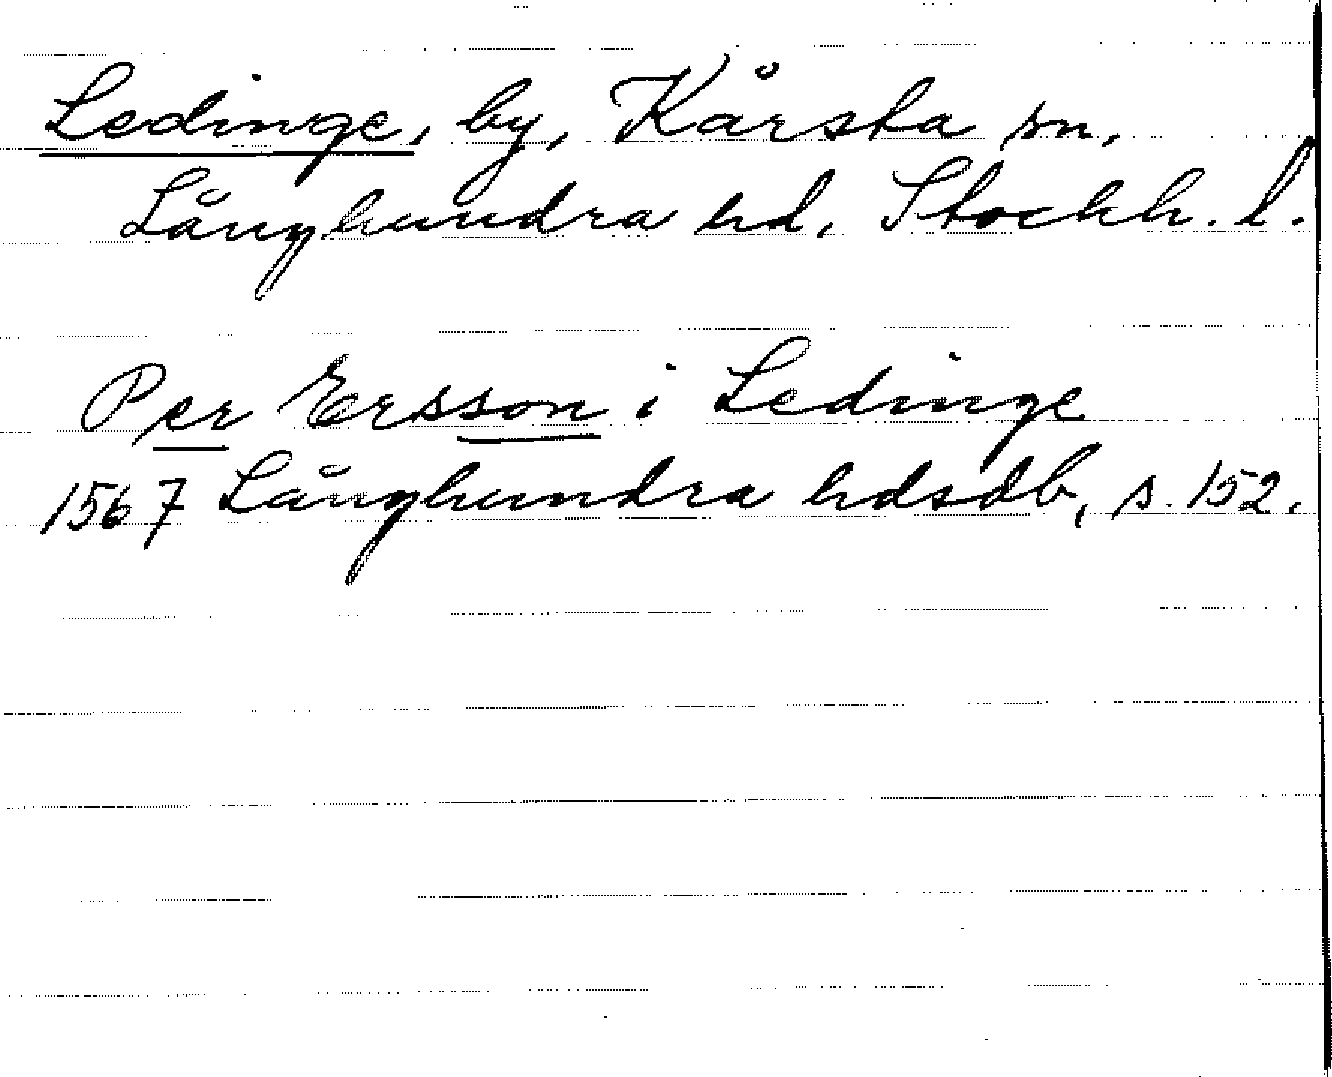 Ledinge, by, Kårsta sn,
Långhundra hd, Stockh. l.
Per Ersson i Ledinge
1567 Långhundra hdsdb, s. 152.